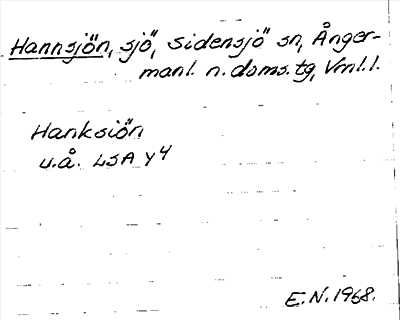 Hannsjön, sjö, Sidensjö sn, Ånger-
manl. n. doms. tg, Vrnl. l.
Hanksiön
u.å. LSA Y4
E.N. 1968.